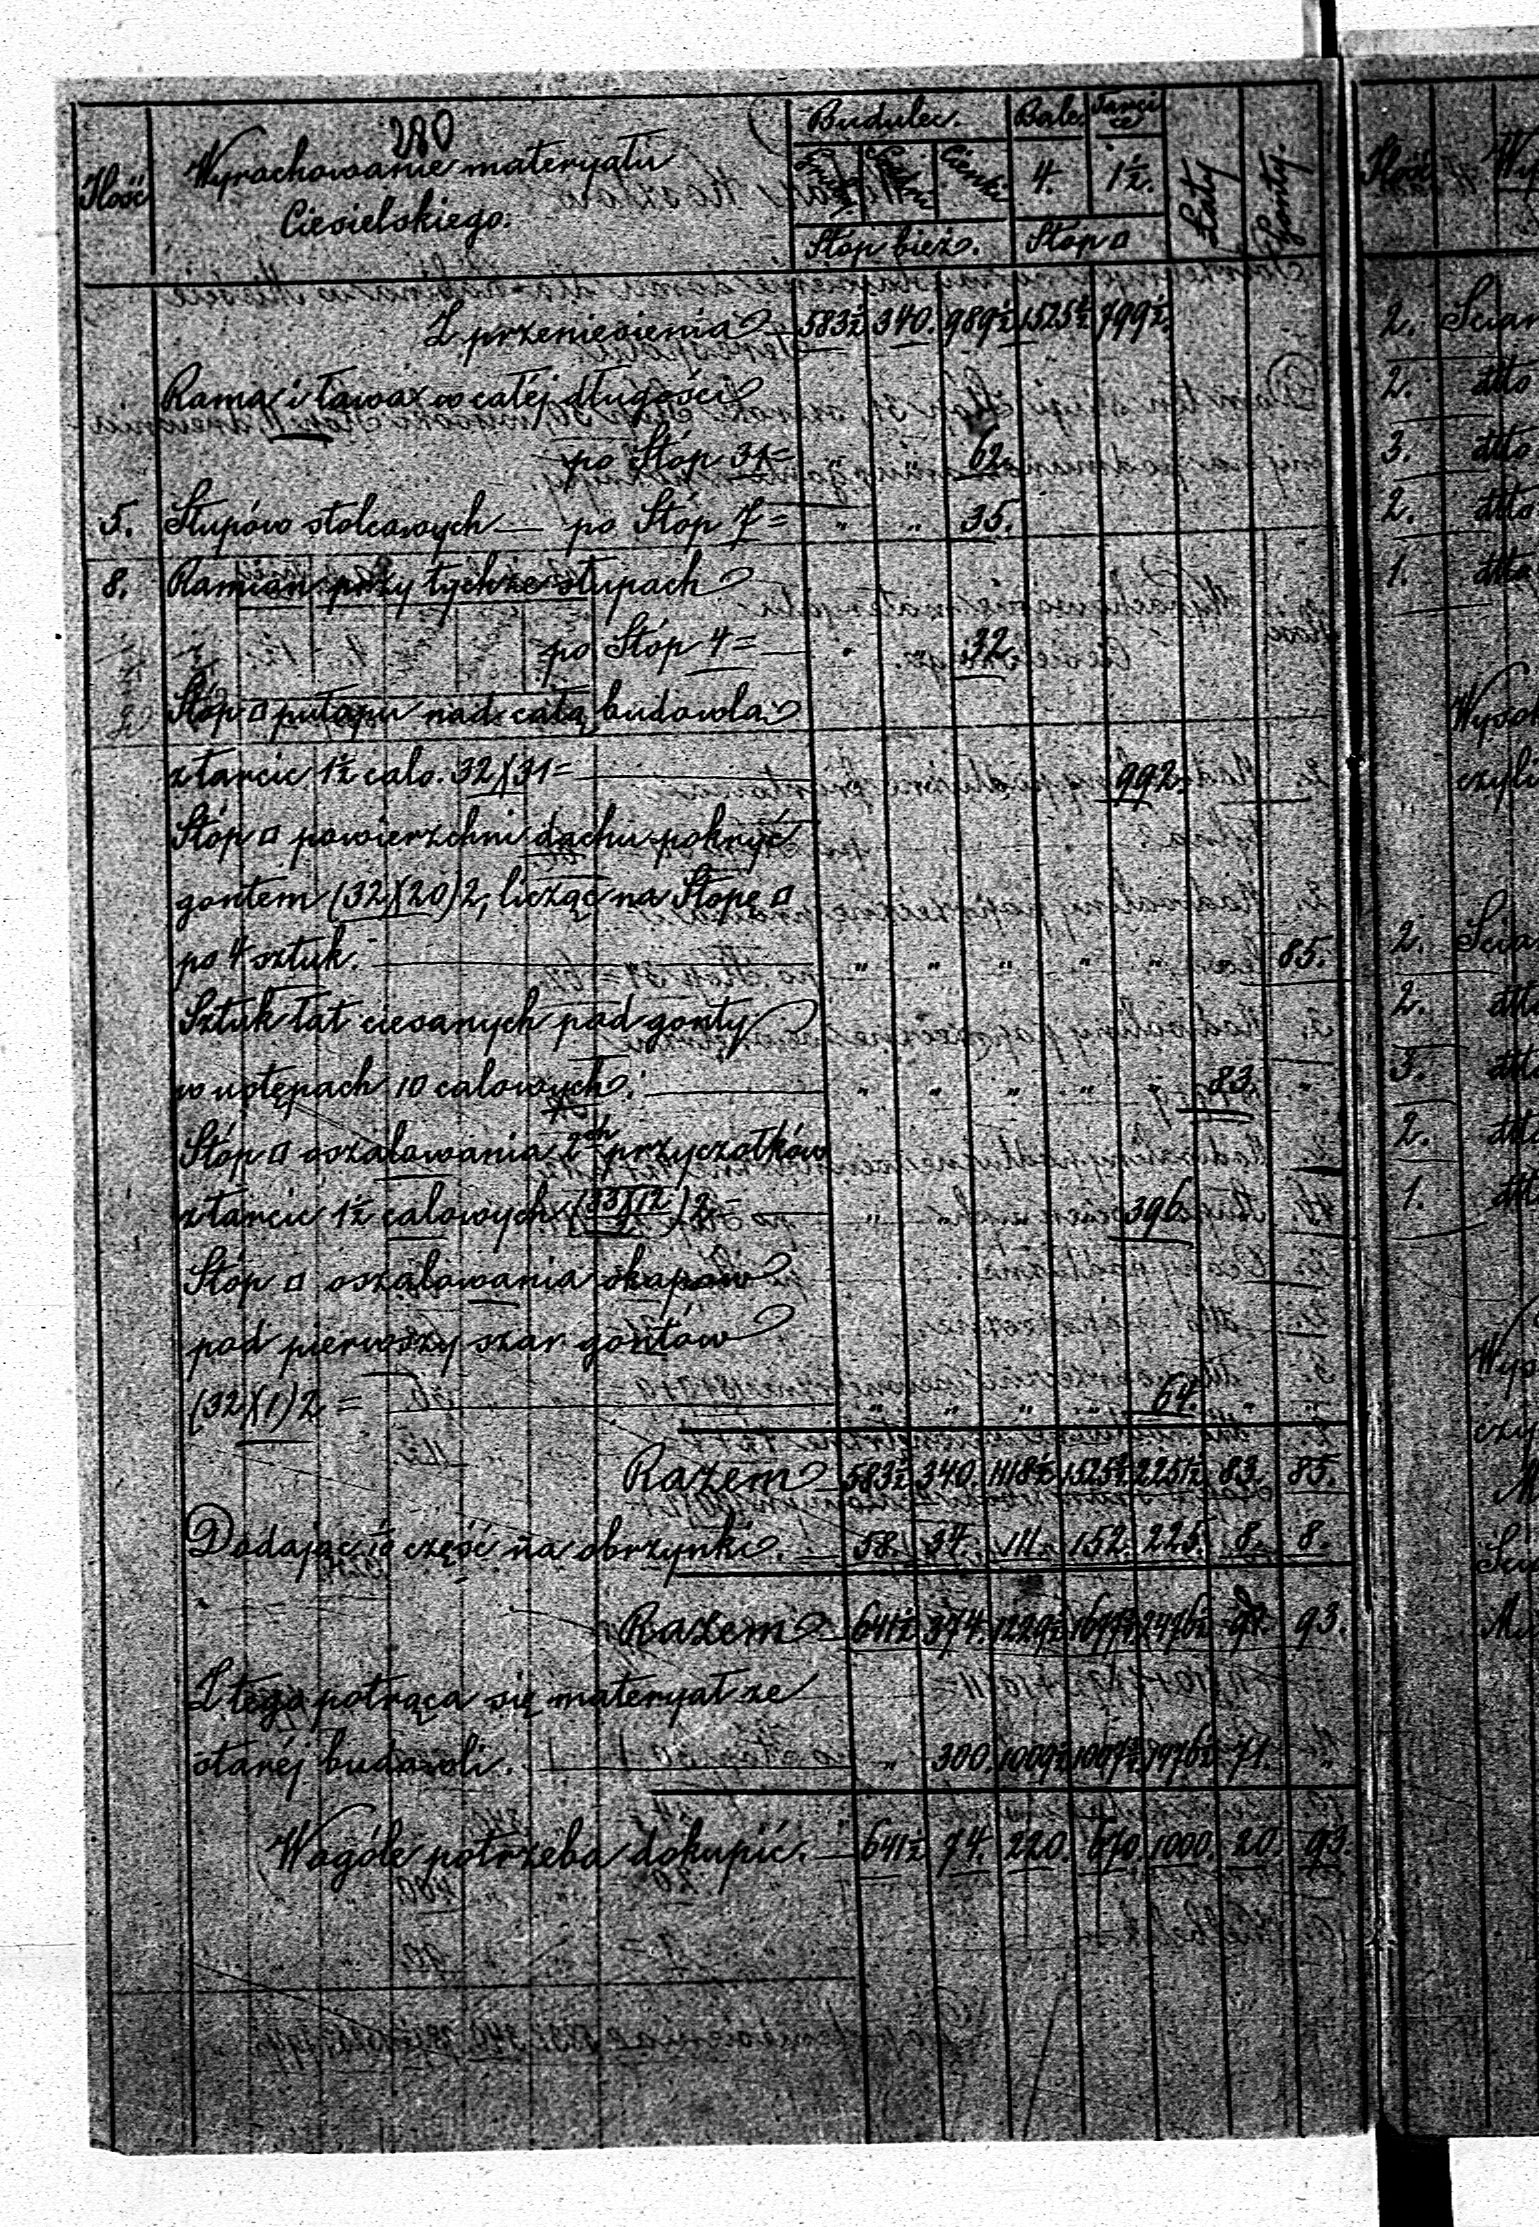 280
Ilość
Wyrachowanie materyału
Ciesielskiego.
Budulec. Bale. Tarcice
4. 1½.
Łaty
Gonty.
Stóp bież. Stóp □
Z przeniesienia 583½ 340. 989½ 1525½ 799½.
Rama i ława w całéj długości
po Stóp 31= " 62.
5. Słupów stolcowych — po Stóp 7= " " 35.
8. Ramion przy tychże słupach
po Stóp 4= " 32.
Stóp □ pułapu nad całą budowlą
z tarcic 1½ calo. 32)(31= 992.
Stóp □ powierzchni dachu pokryć
gontem (32)(20)2, licząc na Stopę □
po 4 sztuk. " " " " " 85.
Sztuk łat ciesanych pod gonty
w ustępach 10 calowych. " " " " " 83.
Stóp □ oszalowania 2ch przyczołków
z tarcic 1½ calowych (33)(12)2= 396.
Stóp □ oszalowania okapów
pod pierwszy szar gontów
(32)(1)2 = " " " " 64.
Razem 583½ 340. 1118½ 1525½ 2251½ 83. 85.
Dodając 1/10 część na obrzynki. 58. 34. 111. 152. 225. 8. 8.
Razem 641½ 374. 1229½ 1677½ 2476½ 91. 93.
Z tego potrąca się materyał ze
staréj budowli. " 300. 1009½ 1007½ 1476½ 71. "
Wogóle potrzeba dokupić. 641½ 74. 220. 670. 1000. 20. 93.
Ilość
2.
2. dtto
3. dtto
2. dtto
1. dtto
2.
2. dtto
3. dtto
2. dtto
1. dtto